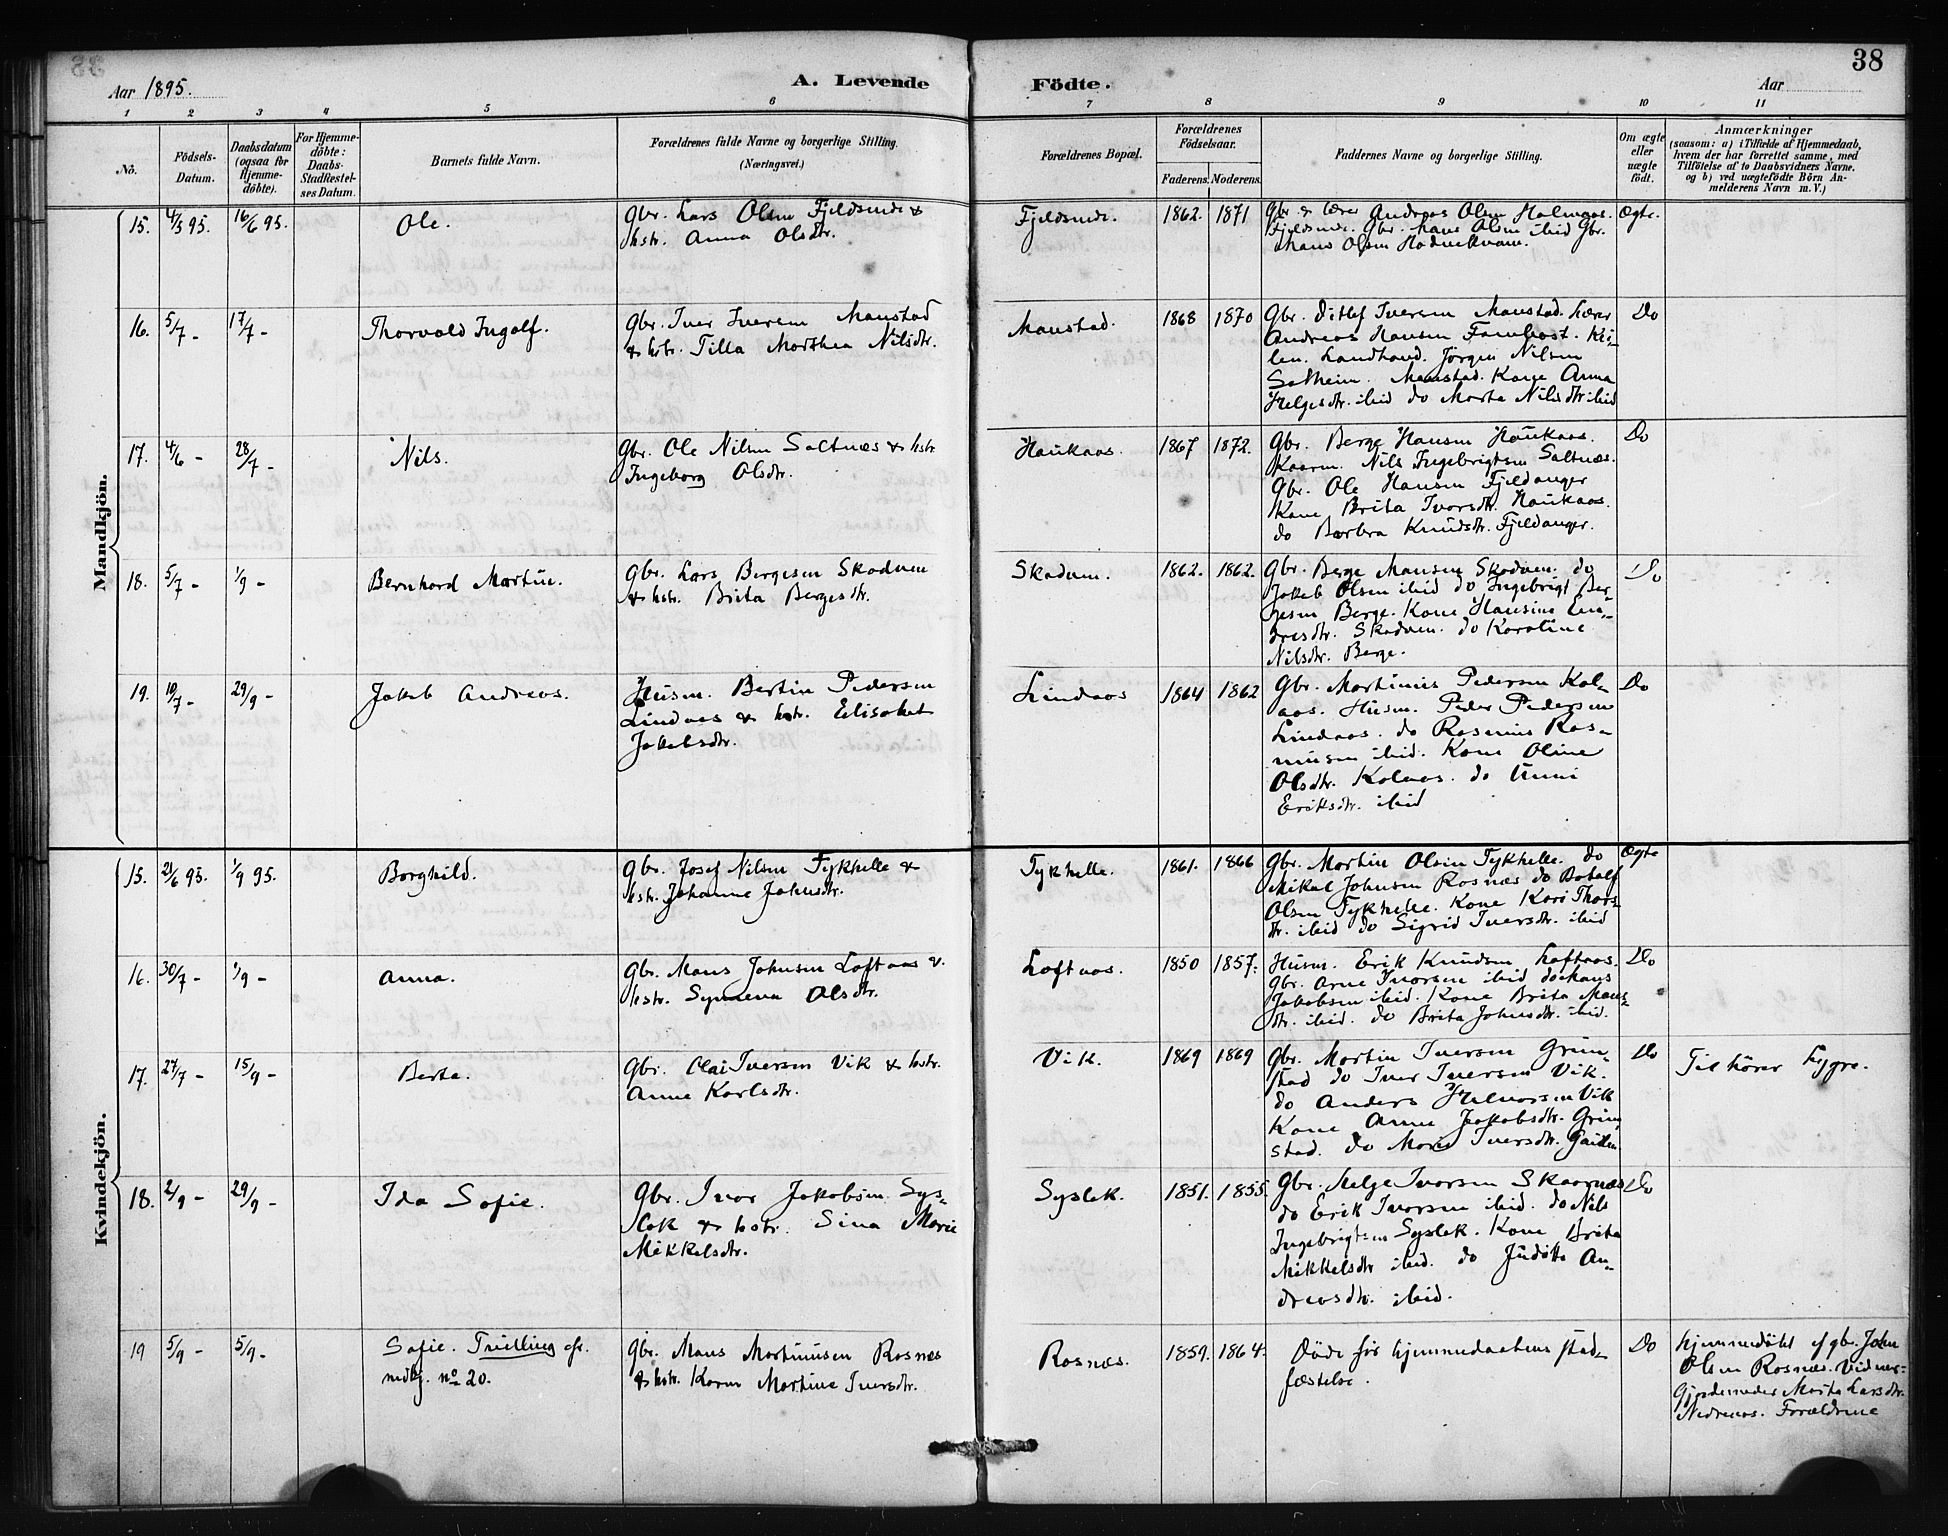 38
Aar 1895.
A. Levende
Födte.
Aar
1 2 3 4 5 6 7 8 9 10 11
No.
Födsels-Datum.
Daabsdatum (ogsaa for Hjemme-döbte).
For Hjemme-döbte: Daabs-Stadfæstel-ses Datum.
Barnets fulde Navn.
Forældrenes fulde Navne og borgerlige Stilling.
(Næringsvei.)
Forældrenes Bopæl.
Forældrenes Födselsaar.
Faderens. Moderens.
Faddernes Navne og borgerlige Stilling.
Om ægte eller uægte födt.
Anmærkninger
(saasom: a) i Tilfælde af Hjemmedaab,
hvem der har forrettet samme, med
Tilföielse af to Daabsvidners Navne.
og b) ved uægtefödte Börn An-
melderens Navn m. V.)
Mandkjön.
15. 4/5 95. 16/6 95. Ole.
Gbr. Lars Olsen Fjeldsende &
hstr. Anna Olsdtr.
Fjeldsende. 1862. 1871
Gbr. & lærer Andreas Olsen Holmaas.
Fjeldsende. Gbr. Mans Olsen ibid Gbr.
Mans Olsen
Ægte.
16. 5/7 - 17/7 - Thorvald Ingolf.
Gbr. Iver Iversen Manstad
& hstr. Tilla Morthea Nilsdtr.
Manstad. 1868 1870
Gbr. Ditlef Iversen Manstad. Lærer
Andreas Hansen
Landhand. Jörgen Nilsen
Solheim. Manstad. Kone Anna
Helgesdtr. ibid do Marta Nilsdtr ibid
Do
17. 4/6 - 28/7 - Nils.
Gbr. Ole Nilsen Saltnæs & hstr
Ingeborg Olsdtr.
Haukaas. 1867 1872.
Gbr. Berge Hansen Haukaas.
Kaarm. Nils Ingebrigtsen Saltnæs.
Gbr. Ole Hansen Fjeldanger
Kone Brita Iversdtr. Haukaas.
do Barbra Knudsdtr. Fjeldanger.
Do
18. 5/7 - 1/9 - Bernhard Martin.
Gbr. Lars Bergesen Skodven
& hstr. Brita Bergesdtr.
Skodven. 1862. 1862.
Gbr. Berge Mansen Skodven. do
Jakob Olsen ibid do Ingebrigt Ber-
gesen Berge. Kone Hansine En-
dresdtr. Skodven. do Karoline
Nilsdtr. Berge.
Do
19. 10/7 - 29/9 - Jakob Andreas.
Husm. Bertin Pedersen
Lindaas & hstr. Elisabet
Jakobsdtr.
Lindaas 1864 1862
Gbr. Martinus Pedersen Kol-
aas. Husm. Peder Pedersen
Lindaas. do Rasmus Ras-
musen ibid. Kone Oline
Olsdtr. Kolaas. do Anni
Eriksdtr. ibid
Do
Kvindekjön.
15. 21/6 95. 1/9 95. Borghild.
Gbr. Josef Nilsen Tykhelle &
hstr. Johanne Johnsdtr.
Tykhelle. 1861. 1866
Gbr. Martin Olsen Tykhelle. do
Mikal Johnsen Rosnæs do Botolf
Olsen Tykhelle. Kone Kari Thors-
dtr. ibid do Sigrid Iversdtr. ibid
Ægte
16. 30/7 - 1/9 - Anna.
Gbr. Mons Johnsen Loftaas &
hstr. Synneva Olsdtr.
Loftaas. 1850 1857.
Husm. Erik Knudsen Loftaas.
Gbr. Arne Iversen ibid do Mans
Jakobsen ibid. Kone Brita Mons-
dtr. ibid. do Brita Johnsdtr. ibid.
Do
17. 27/7 - 15/9 - Berta.
Gbr. Olai Iversen Vik & hstr.
Anne Karlsdtr.
Vik. 1869 1869
Gbr. Martin Iversen Grim-
stad do Iver Iversen Vik.
do Anders Halvorsen Vik
Kone Anne Jakobsdtr. Grim-
stad. do Marie Iversdtr.
Do
Tilhörer Lygre.
18. 2/9 - 29/9 - Ida Sofie.
Gbr. Ivar Jakobsen Sys-
lak & hstr. Sina Marie
Mikkelsdtr.
Syslak. 1851. 1855.
Gbr. Helge Iversen Skaarnæs
do Erik Iversen ibid. do Nils
Ingebrigtsen Syslak. Kone Brita
Mikkelsdtr ibid. do Juditta An-
dreasdtr. ibid.
Do
19 5/9 - 5/9 - Sofie. Tvilling cfr.
nedbg. no 20.
Gbr. Mans Martinusen Rosnæs
& hstr. Karen Martine Iversdtr.
Rosnæs. 1859. 1864.
Döde för hjemmedaabens stad-
fæstelse.
Do
Hjemmedöbt af gbr. John
Olsen Rosnæs. Vidner:
Gjordemoder Marta Larsdtr.
Nedreaas. Forældrene